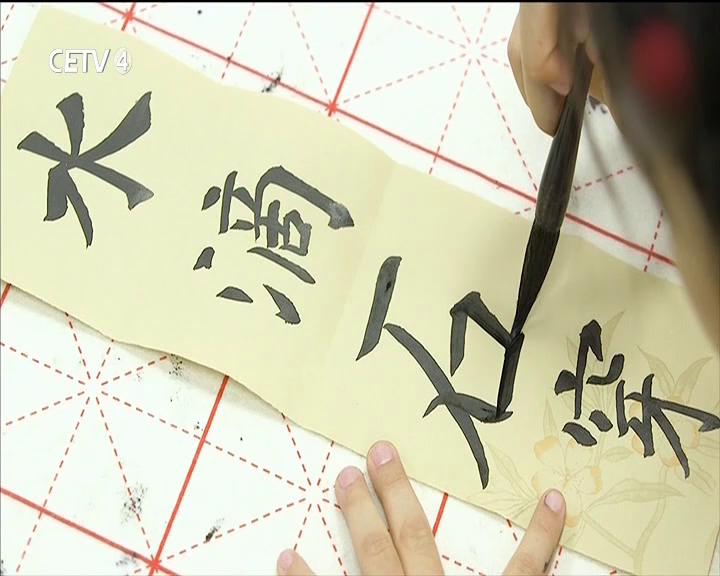 CETV 4
水滴石穿